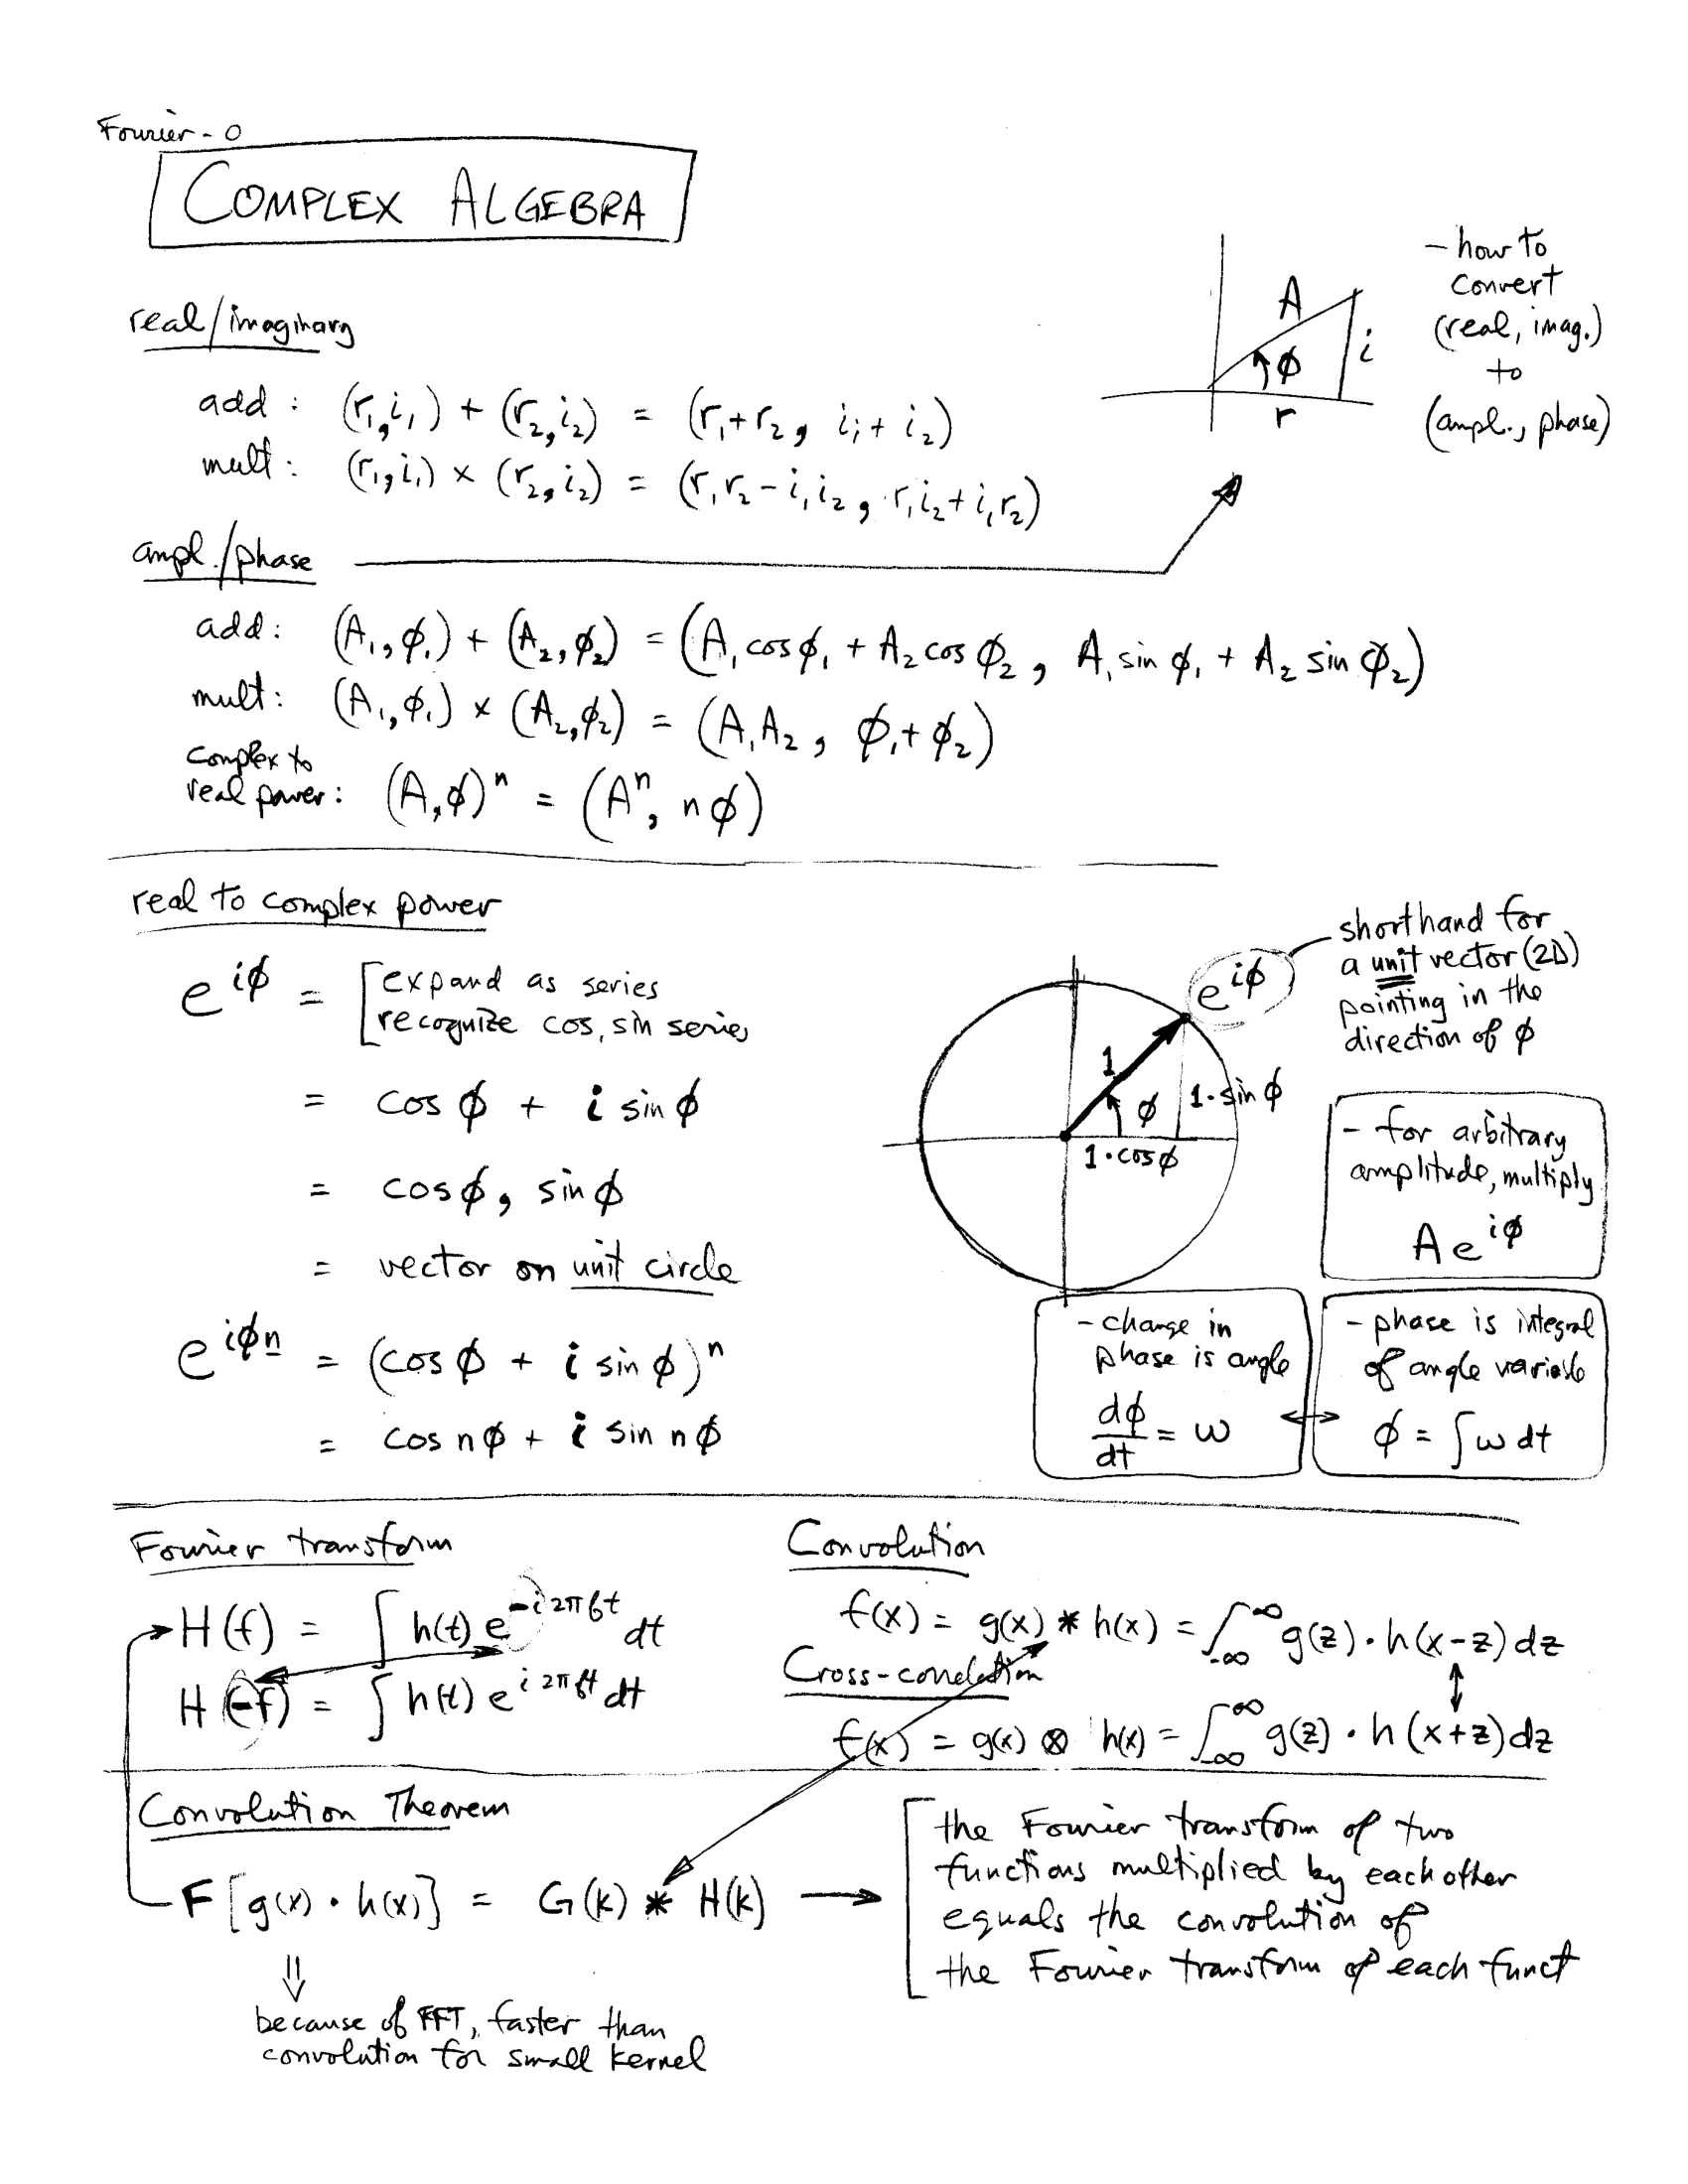 Fourier - 0
COMPLEX ALGEBRA
real/imaginary
add : (r₁, i₁) + (r₂, i₂) = (r₁ + r₂, i₁ + i₂)
mult : (r₁, i₁) × (r₂, i₂) = (r₁r₂ - i₁i₂, r₁i₂ + i₁r₂)
A
i
ϕ
r
- how to
convert
(real, imag.)
to
(ampl., phase)
ampl./phase
add: (A₁, ϕ₁) + (A₂, ϕ₂) = (A₁ cos ϕ₁ + A₂ cos ϕ₂, A₁ sin ϕ₁ + A₂ sin ϕ₂)
mult: (A₁, ϕ₁) × (A₂, ϕ₂) = (A₁A₂, ϕ₁ + ϕ₂)
complex to
real power: (A, ϕ)ⁿ = (Aⁿ, nϕ)
real to complex power
e^{iϕ} = [expand as series
recognize cos, sin series
= cos ϕ + i sin ϕ
= cos ϕ, sin ϕ
= vector on unit circle
e^{iϕn} = (cos ϕ + i sin ϕ)ⁿ
= cos nϕ + i sin nϕ
e^{iϕ}
1
ϕ
1·sin ϕ
1·cos ϕ
shorthand for
a unit vector (2D)
pointing in the
direction of ϕ
- for arbitrary
amplitude, multiply
A e^{iϕ}
- change in
phase is angle
dϕ/dt = ω
- phase is integral
of angle variable
ϕ = ∫ω dt
Fourier transform
H(f) = ∫ h(t) e^{-i2πft} dt
H(-f) = ∫ h(t) e^{i2πft} dt
Convolution
f(x) = g(x) * h(x) = ∫_{-∞}^{∞} g(z)·h(x-z) dz
Cross-correlation
f(x) = g(x) ⊗ h(x) = ∫_{-∞}^{∞} g(z)·h(x+z) dz
Convolution Theorem
F[g(x)·h(x)] = G(k) * H(k) →
the Fourier transform of two
functions multiplied by each other
equals the convolution of
the Fourier transform of each funct
⇓
because of FFT, faster than
convolution for small kernel